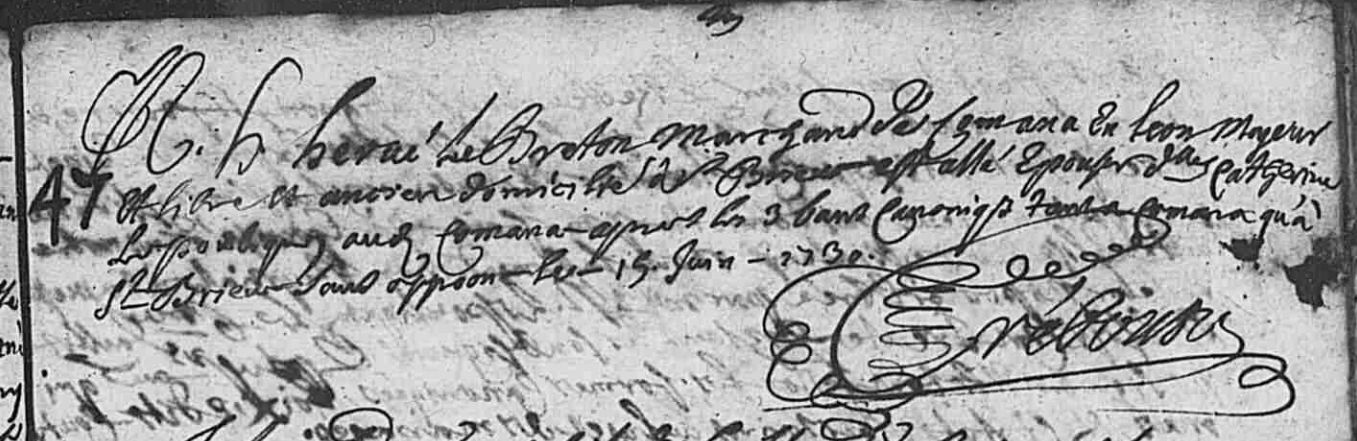 M. h. hervé Le Breton Marchand de Comana En Leon Majeur
47 et libre et ancien domicilié à St Brieuc est allé Epouser dlle Catherine
aud. Comana apres les 3 bans Canoniqs tant a Comana qu'à
St Brieuc sans oppoon le 15. Juin 1730.